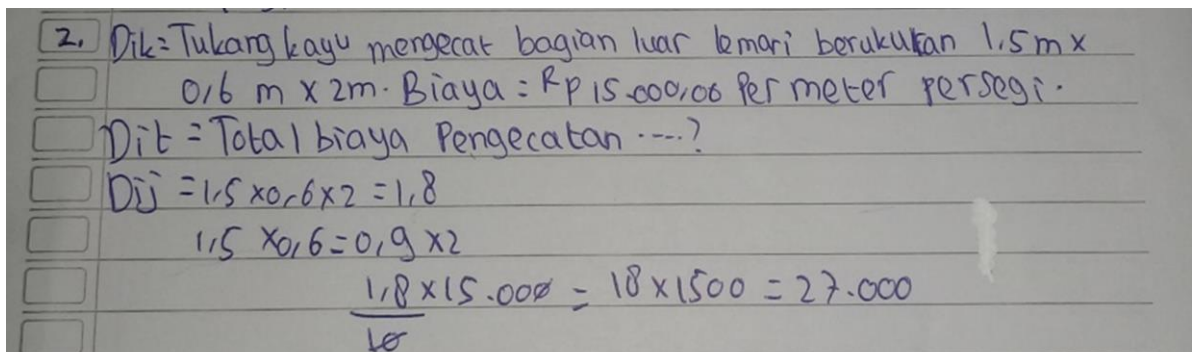 2. Dik = Tukang kayu mengecat bagian luar lemari berukuran 1,5 m x
0,6 m x 2m. Biaya = Rp 15.000,00 Per meter persegi.
Dit = Total biaya Pengecatan ....?
Dij = 1,5 x 0,6 x 2 = 1,8
1,5 x 0,6 = 0,9 x 2
1,8 x 15.000 = 18 x 1500 = 27.000
10